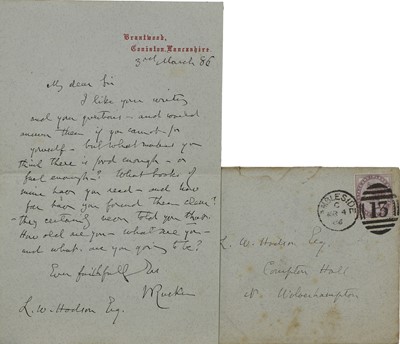 Brantwood,
Coniston, Lancashire.
3rd March 86
My dear Sir
I like your writing
and your questions - and would
answer them if you cannot for
yourself - but what makes you
think there is food enough - or
fuel enough? What books of
mine have you read - and how
far have you found them clear?
- they certainly never told you that.
How old are you - what are you -
and what are you going to be?
Ever faithfully Yrs
JRuskin
L. W. Hodson Esq.
AMBLESIDE
C
MR 4
86
13
L. W. Hodson Esq.
Compton Hall
Nr. Wolverhampton